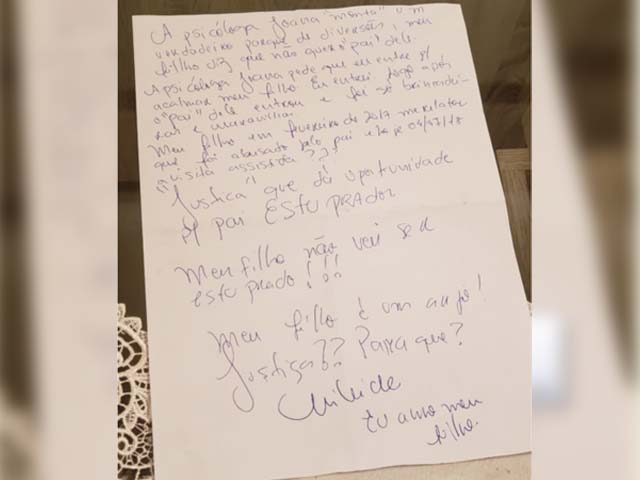 A psicóloga Joana "monta" um
verdadeiro parque de diversões, meu
filho diz que não quer o "pai" dele.
A psicóloga Joana pede que eu entre p/
acalmar meu filho. Eu entrei. Logo após
o "pai" dele entrou e foi só brincadei-
ras e maravilhas.
Meu filho em fevereiro de 2017 me relatou
que foi abusado pelo pai e hoje
"visita assistida"??
Justiça que dá oportunidade
p/ pai ESTUPRADOR
Meu filho não vai ser
estuprado!!!
Meu filho é um anjo!
Justiça?? Para que?
Eu amo meu
filho.